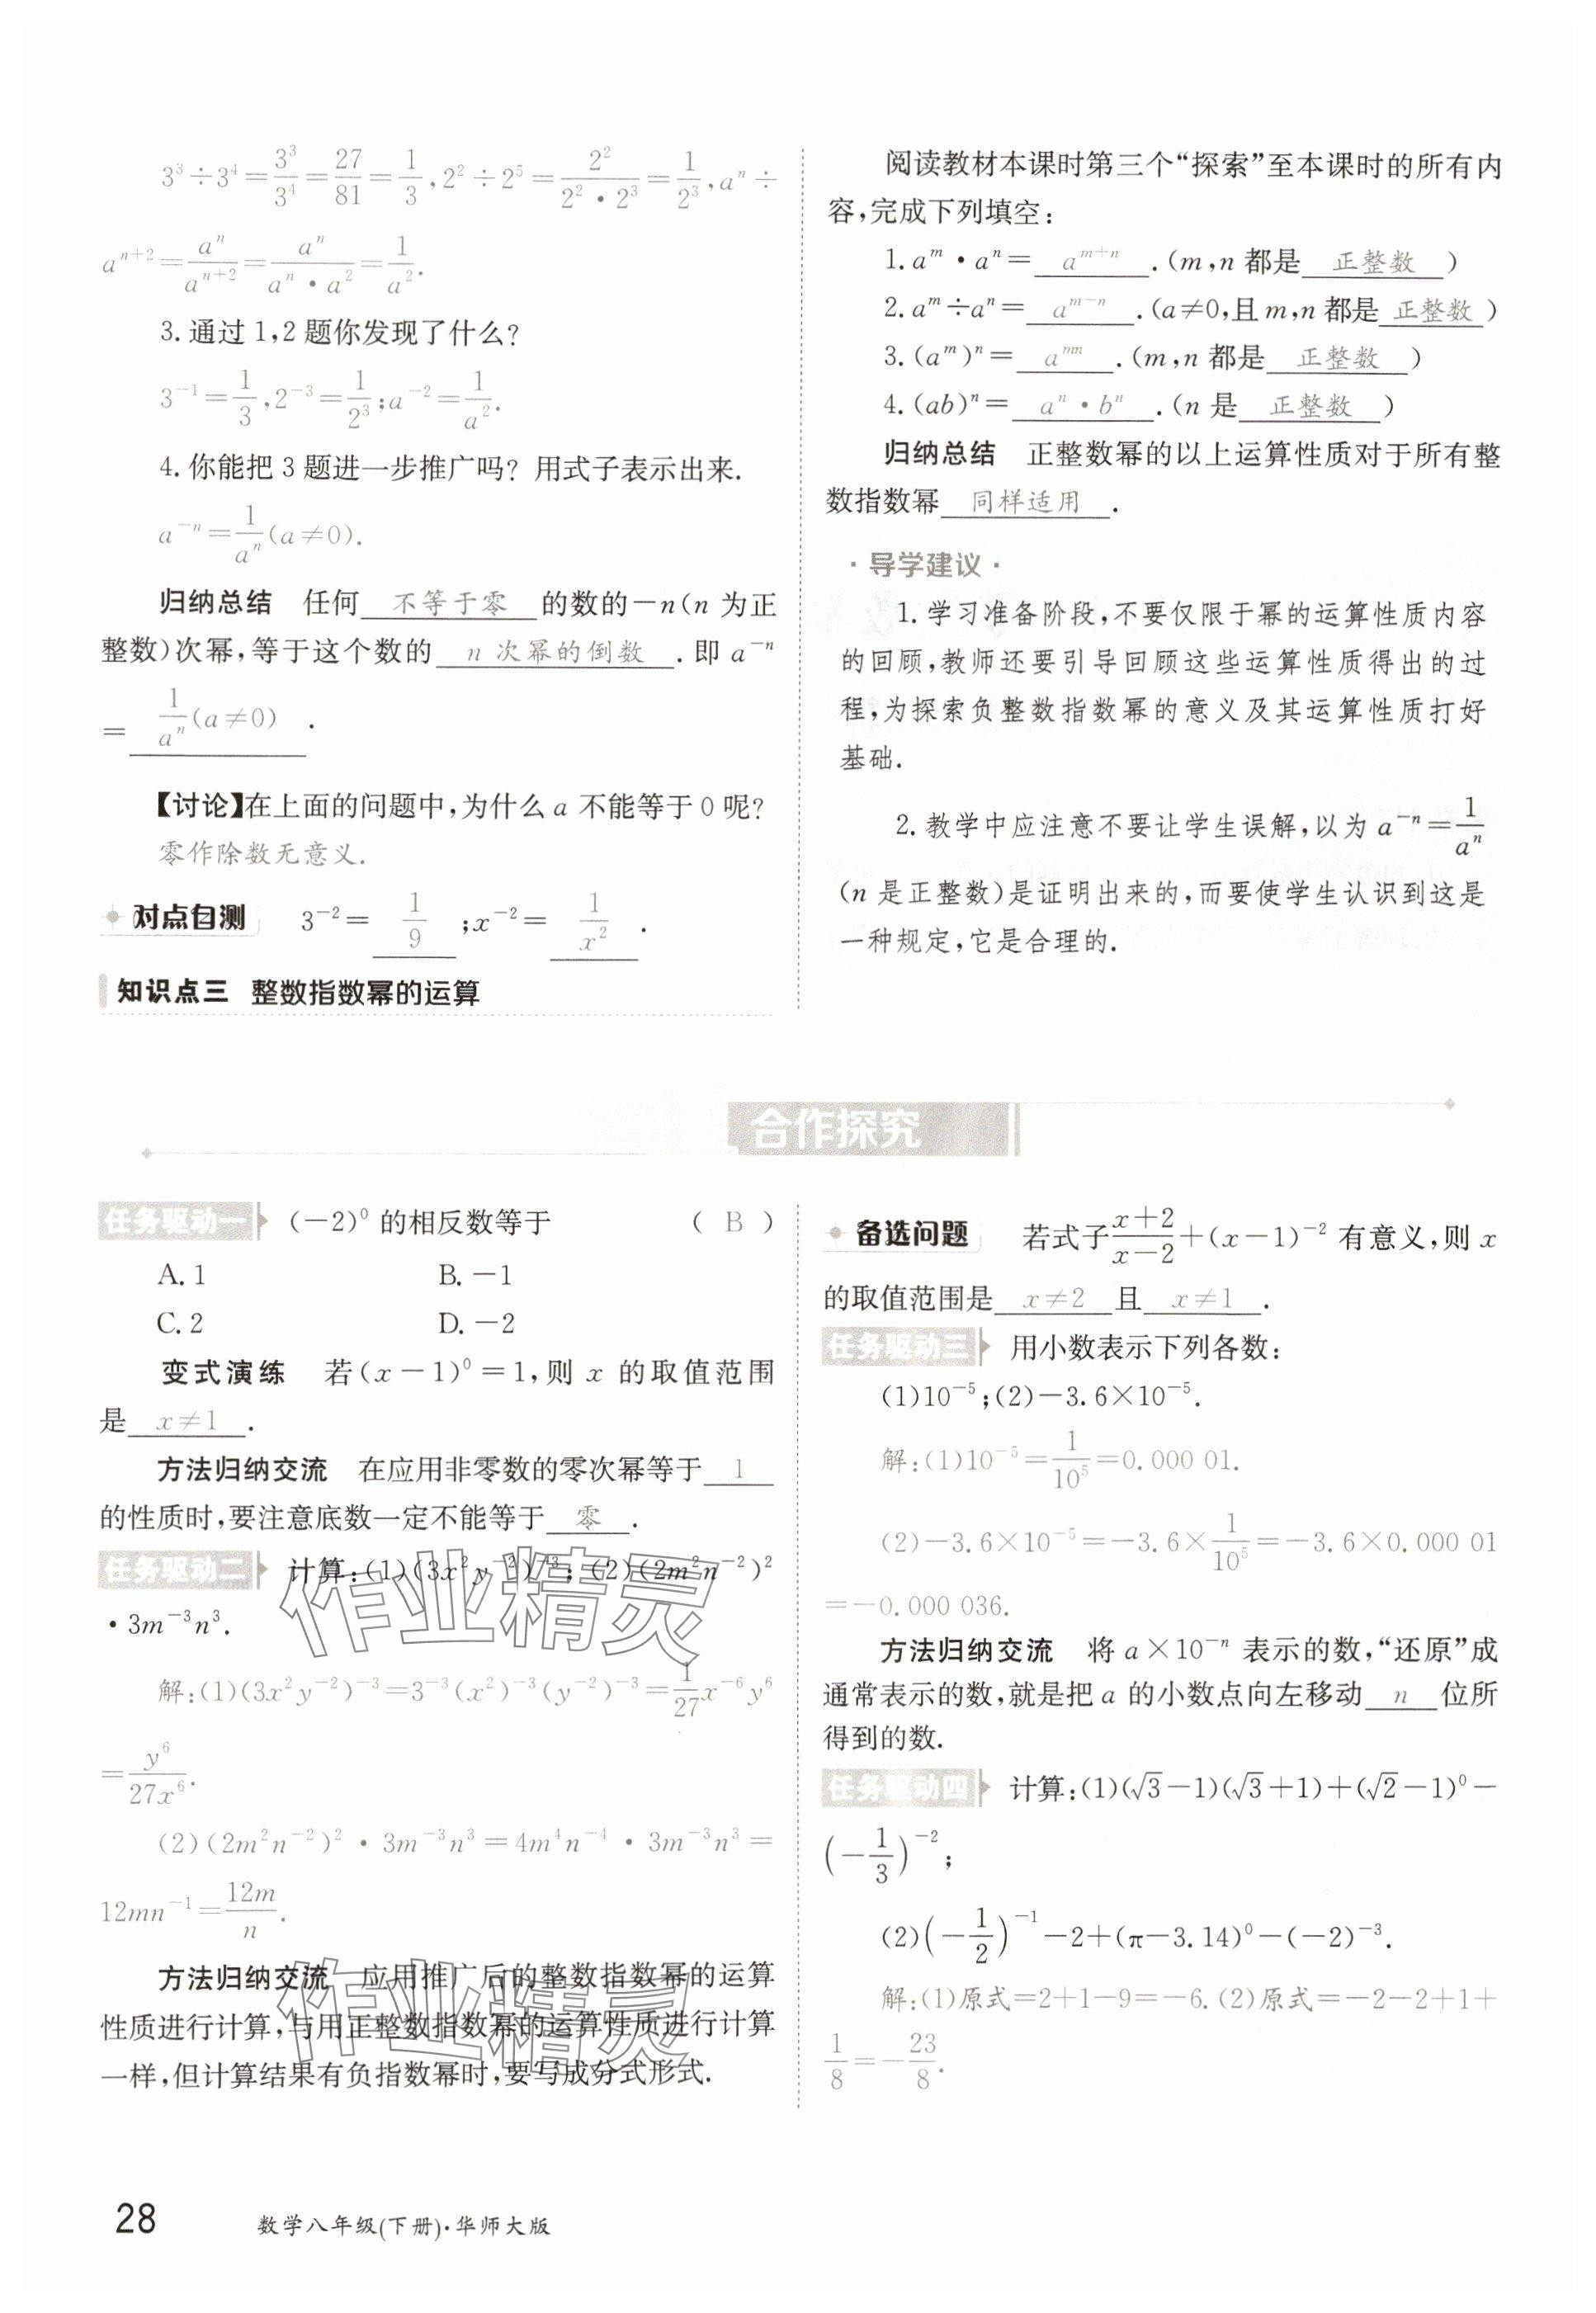 3³÷3⁴=3³/3⁴=27/81=1/3,2²÷2⁵=2²/(2²·2³)=1/2³,aⁿ÷
aⁿ⁺²=aⁿ/aⁿ⁺²=aⁿ/(aⁿ·a²)=1/a².
3.通过1,2题你发现了什么?
3⁻¹=1/3,2⁻³=1/2³;a⁻²=1/a².
4.你能把3题进一步推广吗?用式子表示出来.
a⁻ⁿ=1/aⁿ(a≠0).
归纳总结 任何 不等于零 的数的-n(n为正
整数)次幂,等于这个数的 n次幂的倒数 .即a⁻ⁿ
= 1/aⁿ(a≠0) .
【讨论】在上面的问题中,为什么a不能等于0呢?
零作除数无意义.
对点自测 3⁻²= 1/9 ;x⁻²= 1/x² .
知识点三 整数指数幂的运算
阅读教材本课时第三个“探索”至本课时的所有内
容,完成下列填空:
1.aᵐ·aⁿ= aᵐ⁺ⁿ .(m,n都是 正整数 )
2.aᵐ÷aⁿ= aᵐ⁻ⁿ .(a≠0,且m,n都是 正整数 )
3.(aᵐ)ⁿ= aᵐⁿ .(m,n都是 正整数 )
4.(ab)ⁿ= aⁿ·bⁿ .(n是 正整数 )
归纳总结 正整数幂的以上运算性质对于所有整
数指数幂 同样适用 .
·导学建议·
1.学习准备阶段,不要仅限于幂的运算性质内容
的回顾,教师还要引导回顾这些运算性质得出的过
程,为探索负整数指数幂的意义及其运算性质打好
基础.
2.教学中应注意不要让学生误解,以为a⁻ⁿ=1/aⁿ
(n是正整数)是证明出来的,而要使学生认识到这是
一种规定,它是合理的.
合作探究
任务驱动一 (-2)⁰的相反数等于 ( B )
A.1 B.-1
C.2 D.-2
变式演练 若(x-1)⁰=1,则x的取值范围
是 x≠1 .
方法归纳交流 在应用非零数的零次幂等于 1
的性质时,要注意底数一定不能等于 零 .
任务驱动二 计算:(1)(3x²y⁻²)⁻³;(2)(2m²n⁻²)²
·3m⁻³n³.
解:(1)(3x²y⁻²)⁻³=3⁻³(x²)⁻³(y⁻²)⁻³=1/27x⁻⁶y⁶
=y⁶/27x⁶.
(2)(2m²n⁻²)²·3m⁻³n³=4m⁴n⁻⁴·3m⁻³n³=
12mn⁻¹=12m/n.
方法归纳交流 应用推广后的整数指数幂的运算
性质进行计算,与用正整数指数幂的运算性质进行计算
一样,但计算结果有负指数幂时,要写成分式形式.
备选问题 若式子(x+2)/(x-2)+(x-1)⁻²有意义,则x
的取值范围是 x≠2 且 x≠1 .
任务驱动三 用小数表示下列各数:
(1)10⁻⁵;(2)-3.6×10⁻⁵.
解:(1)10⁻⁵=1/10⁵=0.000 01.
(2)-3.6×10⁻⁵=-3.6×1/10⁵=-3.6×0.000 01
=-0.000 036.
方法归纳交流 将a×10⁻ⁿ表示的数,“还原”成
通常表示的数,就是把a的小数点向左移动 n 位所
得到的数.
任务驱动四 计算:(1)(√3-1)(√3+1)+(√2-1)⁰-
(-1/3)⁻²;
(2)(-1/2)⁻¹-2+(π-3.14)⁰-(-2)⁻³.
解:(1)原式=2+1-9=-6.(2)原式=-2-2+1+
1/8=-23/8.
作业精灵
作业精灵
28 数学八年级(下册)·华师大版